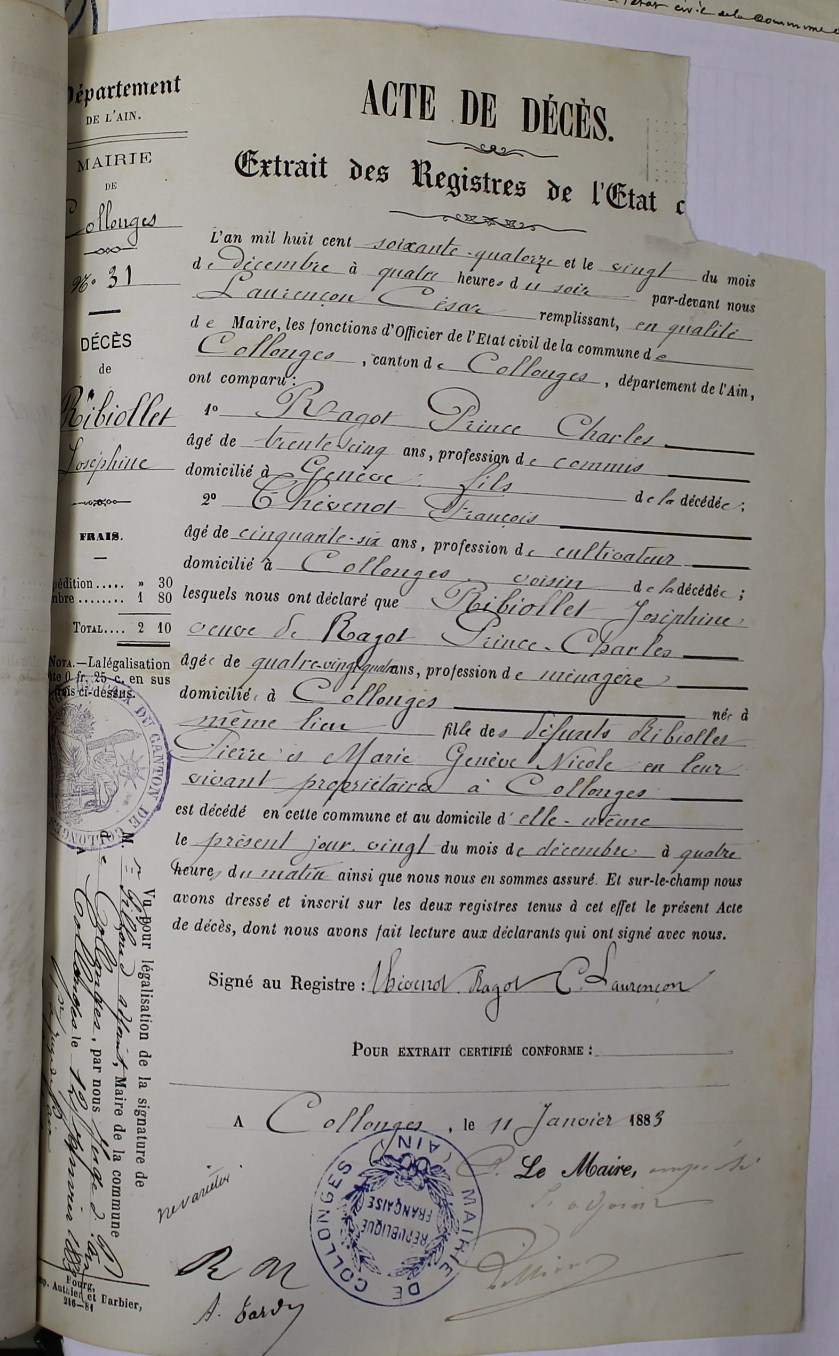 état civil de la Commune d
Département
DE L'AIN.
MAIRIE
DE
Collonges
No. 31
DÉCÈS
de
Ribiollet
Joséphine
FRAIS.
pédition ..... » 30
mbre ........ 1 80
TOTAL.... 2 10
NOTA.—La légalisation
te 0 fr. 25 c. en sus
frais ci-dessus.
ACTE DE DÉCÈS.
Extrait des Registres de l'Etat c
L'an mil huit cent soixante-quatorze et le vingt du mois
de Décembre à quatre heures du soir par-devant nous
Laurençon César remplissant, en qualité
de Maire, les fonctions d'Officier de l'Etat civil de la commune de
Collonges, canton de Collonges, département de l'Ain,
ont comparu :
1o Ragot Prince Charles
âgé de trente cinq ans, profession de commis
domicilié à Genève fils de la décédée ;
2o Thévenot François
âgé de cinquante-six ans, profession de cultivateur
domicilié à Collonges voisin de la décédée ;
lesquels nous ont déclaré que Ribiollet Joséphine
veuve de Ragot Prince-Charles
âgée de quatre-vingt quatre ans, profession de ménagère
domicilié, à Collonges née à
même lieu fille des défunts Ribiollet
Pierre et Marie Genève Nicole en leur
vivant propriétaires à Collonges
est décédé en cette commune et au domicile d'elle-même
le présent jour vingt du mois de décembre à quatre
heures du matin ainsi que nous nous en sommes assuré. Et sur-le-champ nous
avons dressé et inscrit sur les deux registres tenus à cet effet le présent Acte
de décès, dont nous avons fait lecture aux déclarants qui ont signé avec nous.
Signé au Registre : Thévenot Ragot C. Laurençon
POUR EXTRAIT CERTIFIÉ CONFORME :
A Collonges, le 11 Janvier 1883
P. Le Maire, empêché
L'adjoint
MAIRIE DE COLLONGES (AIN)
RÉPUBLIQUE FRANÇAISE
DU CANTON DE COLLONGES
Ne varietur
R M
A. Tardy
Vu pour légalisation de la signature de
M. adjoint, Maire de la commune
de Collonges, par nous Juge de Paix
A Collonges le 12 Janvier 1883
Bourg,
mp. Authier et Barbier,
216—81